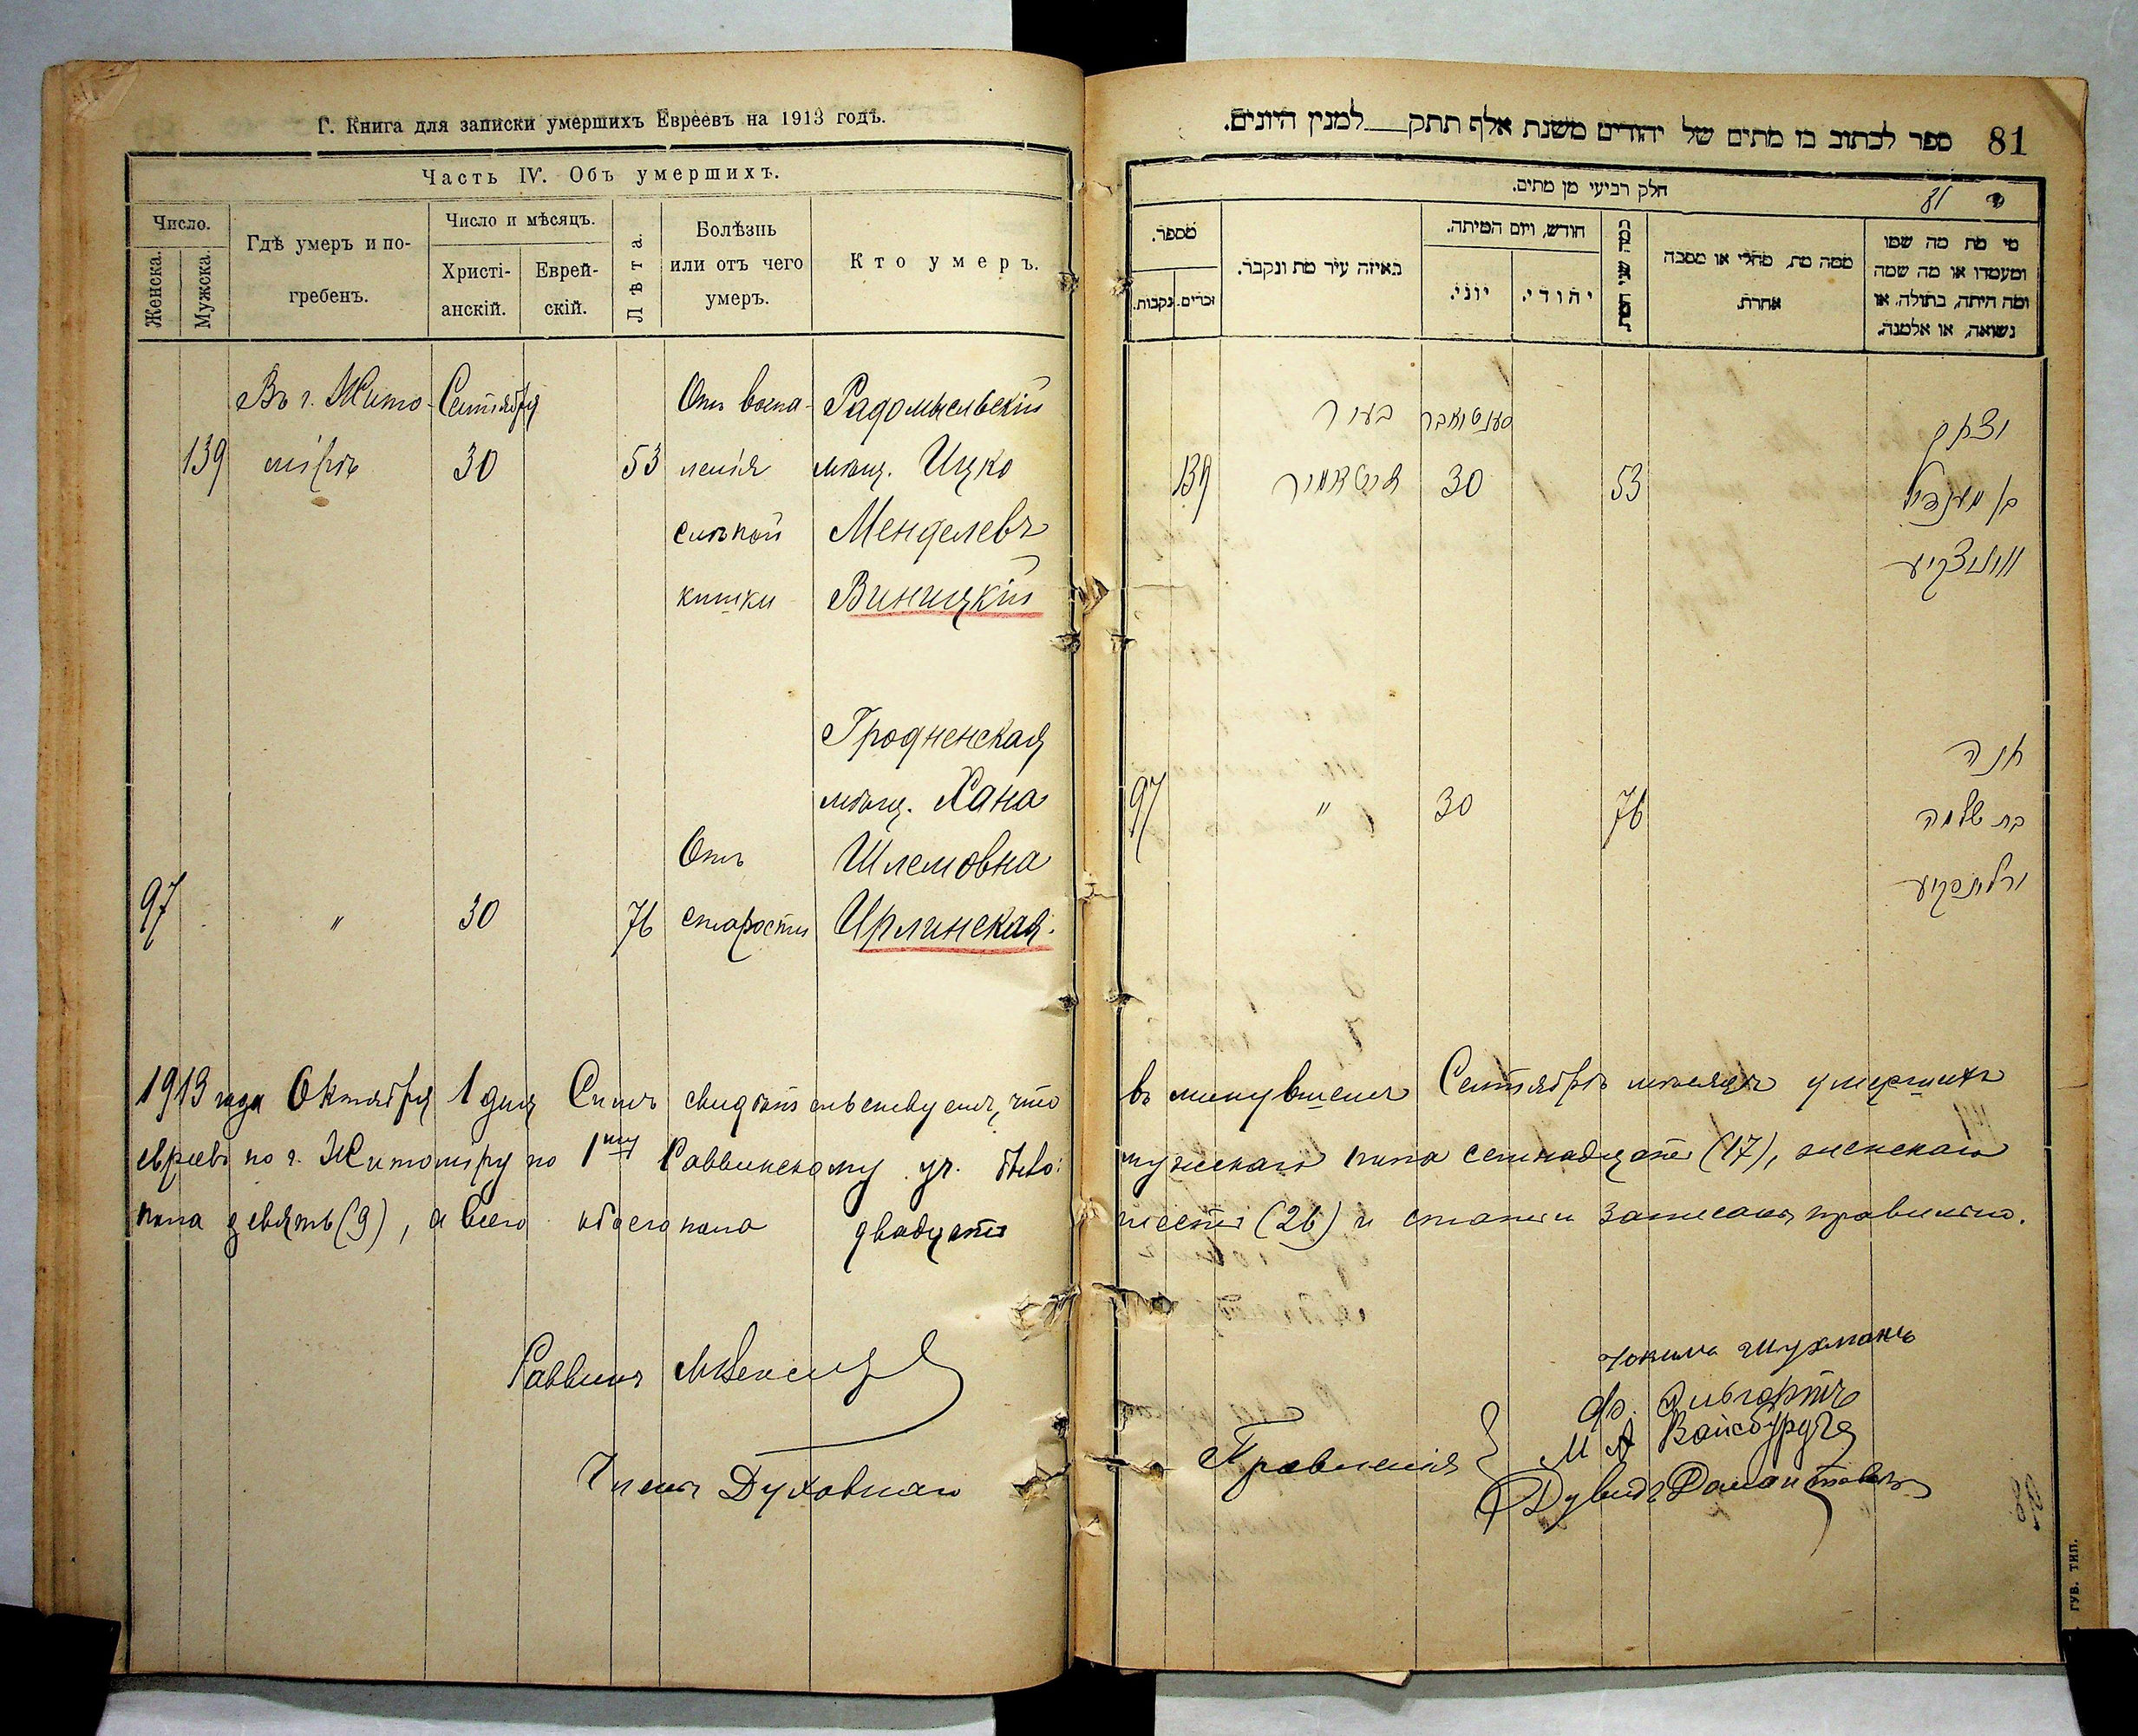 Г. Книга для записки умершихъ Евреевъ на 1913 годъ.
Часть IV. Объ умершихъ.
Число.
Женска.
Мужска.
Гдѣ умеръ и по-
гребенъ.
Число и мѣсяцъ.
Христі-
анскій.
Еврей-
скій.
Лѣта.
Болѣзнь
или отъ чего
умеръ.
Кто умеръ.
Въ г. Жито- Сентября Отъ воспа- Радомысльскій
139 мірѣ 30 53 ленія мѣщ. Ицко
слѣпой Менделевъ
кишки Виницкій
Гродненская
мѣщ. Хана
Отъ Шлемовна
97 " 30 76 старости Ирлинская.
1913 года Октября 1 дня Симъ свидѣтельствуемъ, что
евреевъ по г. Житоміру по 1му Раввинскому уч. было:
пола девять (9), а всего обоего пола двадцать
Раввинъ
Члены Духовнаго
81
ספר לכתוב בו מתים של יהודים משנת אלף תתק למנין היונים.
חלק רביעי מן מתים.
81
מספר.
נקבות.
זכרים.
באיזה עיר מת ונקבר.
חודש, ויום המיתה.
יוני.
יהודי.
כמה שני המת
ממה מת, מחלי או מסבה
אחרת.
מי מת מה שמו
ומעמדו או מה שמה
ומה היתה, בתולה, או
נשואה, או אלמנה.
יצחק סענטיאבר בעיר
בן מענדיל 53 30 זיטאמיר 139
וויניצקיע
חנה
בת שלמה 76 30 " 97
ירלינסקיע
въ минувшемъ Сентябрѣ мѣсяцѣ умершихъ
мужскаго пола семнадцать (17), женскаго
шесть (26) и статьи записаны правильно.
Правленія
М А Вайсбурдъ
Дувидъ
ГУБ. ТИП.